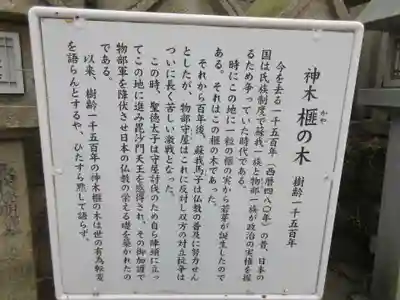 神木 榧の木 樹齢一千五百年
かや
今を去る一千五百年(西暦四八〇年)の昔、日本の
国は氏族制度で蘇我一族と物部一族が政治の実権を握
るため争っていた時代である。
時にこの地に一粒の榧の実から若芽が誕生したので
ある。それはこの榧の木であった。
それから百年後、蘇我馬子は仏教の普及に努力せん
としたが、物部守屋はこれに反対し双方の対立抗争は
ついに長く苦しい激戦となった。
この時、聖徳太子は守屋討伐のため自ら陣頭に立っ
てこの地に進み毘沙門天王を感得され、その御加護で
物部軍を降伏させ日本の仏教の栄える礎を築かれたの
である。
以来、樹齢一千五百年の神木榧の木は世の有為転変
を語らんとするや、ひたすら黙して語らず。